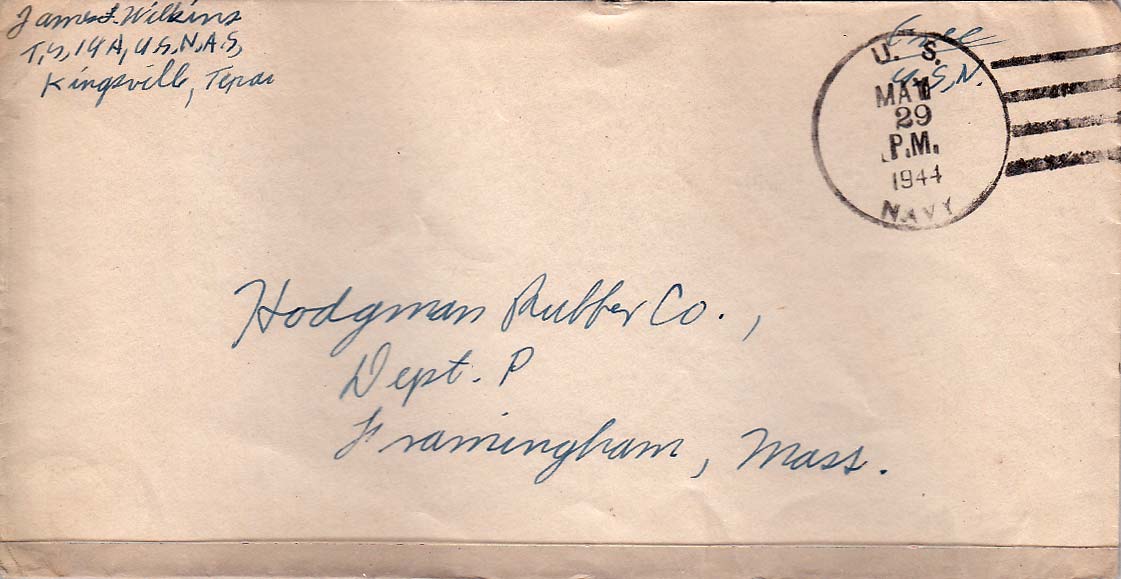 James F. Wilkins
T,S,14A, U.S.N.A.S,
Kingsville, Texas
Free
U.S.N.
U. S.
MAY
29
P.M.
1944
NAVY
Hodgman Rubber Co.,
Dept. P
Framingham, Mass.